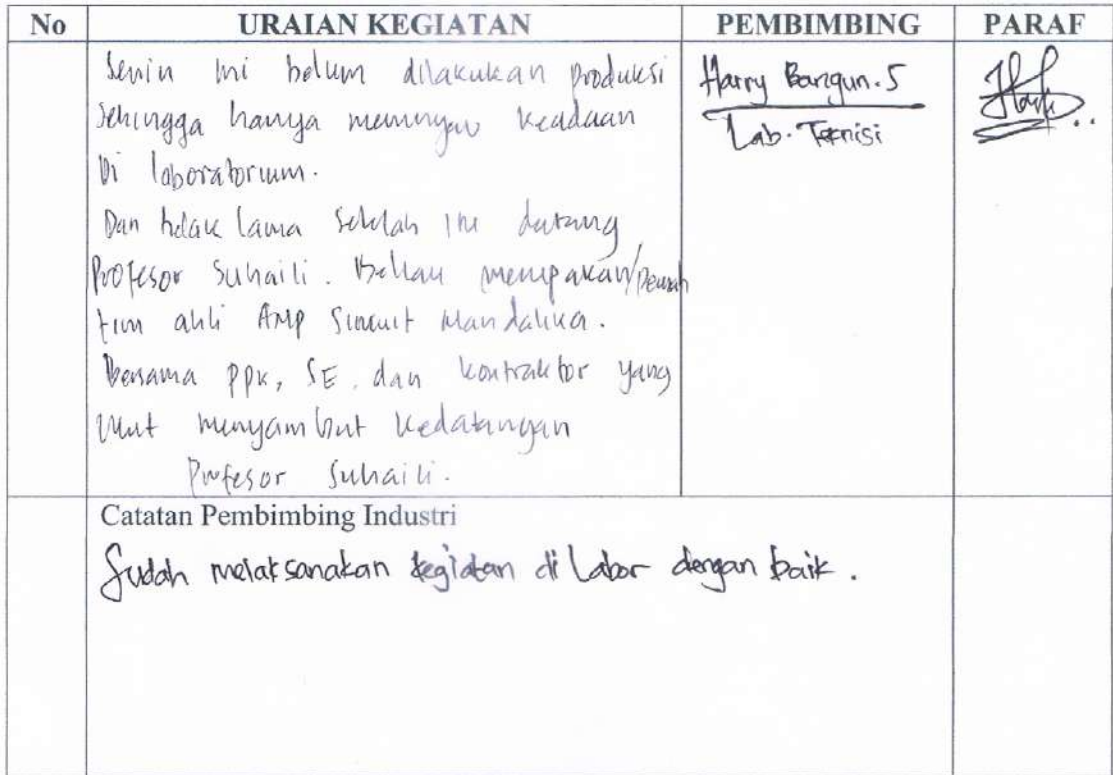 No URAIAN KEGIATAN PEMBIMBING PARAF
Senin ini belum dilakukan produksi
sehingga hanya meninjau keadaan
Di laboratorium.
Dan tidak lama setelah ini datang
Profesor Suhaili. Beliau merupakan
tim ahli AMP Sircuit Mandalika.
Bersama PPK, SE, dan kontraktor yang
ikut menyambut kedatangan
Profesor Suhaili.
Harry Bangun.S
Lab. Teknisi
Catatan Pembimbing Industri
Sudah melaksanakan kegiatan di Labor dengan baik.